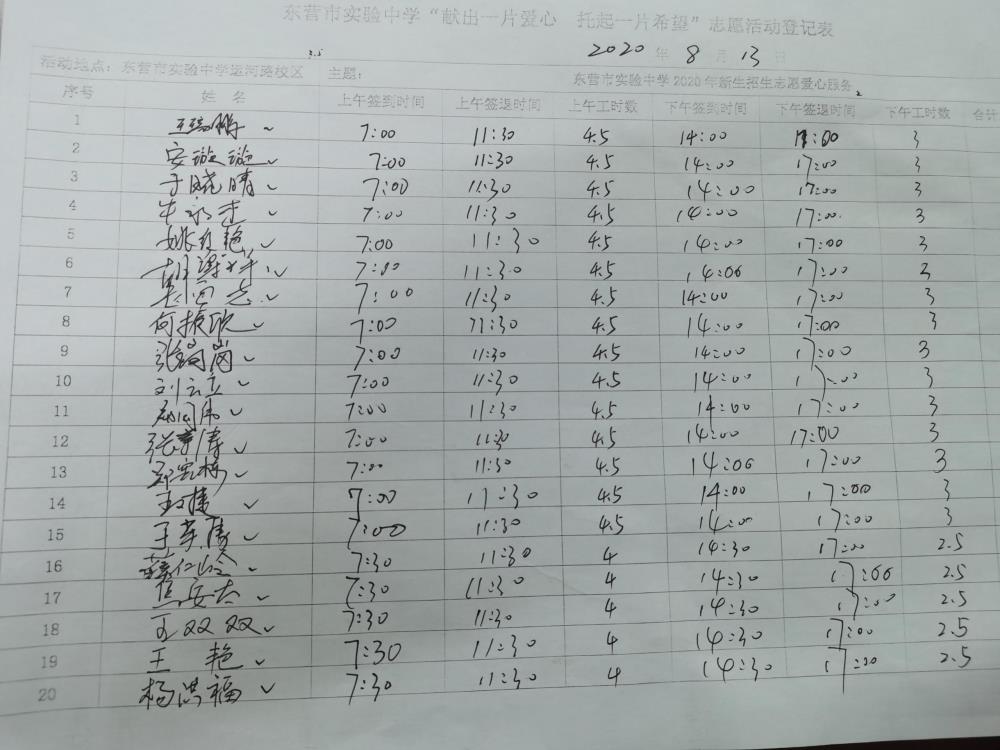 东营市实验中学“献出一片爱心 托起一片希望”志愿活动登记表
2020 年 8 月 13 日
活动地点：东营市实验中学运河路校区 主题： 东营市实验中学2020年新生招生志愿爱心服务
序号 姓名 上午签到时间 上午签退时间 上午工时数 下午签到时间 下午签退时间 下午工时数 合计
1 7:00 11:30 4.5 14:00 17:00 3
2 安璇璇 7:00 11:30 4.5 14:00 17:00 3
3 于晓晴 7:00 11:30 4.5 14:00 17:00 3
4 7:00 11:30 4.5 14:00 17:00 3
5 姚红艳 7:00 11:30 4.5 14:00 17:00 3
6 7:00 11:30 4.5 14:00 17:00 3
7 7:00 11:30 4.5 14:00 17:00 3
8 何振欣 7:00 11:30 4.5 14:00 17:00 3
9 7:00 11:30 4.5 14:00 17:00 3
10 刘云立 7:00 11:30 4.5 14:00 17:00 3
11 7:00 11:30 4.5 14:00 17:00 3
12 7:00 11:30 4.5 14:00 17:00 3
13 7:00 11:30 4.5 14:00 17:00 3
14 7:00 11:30 4.5 14:00 17:00 3
15 7:00 11:30 4.5 14:00 17:00 3
16 7:30 11:30 4 14:30 17:00 2.5
17 7:30 11:30 4 14:30 17:00 2.5
18 王双双 7:30 11:30 4 14:30 17:00 2.5
19 王艳 7:30 11:30 4 14:30 17:00 2.5
20 杨洪福 7:30 11:30 4 14:30 17:00 2.5